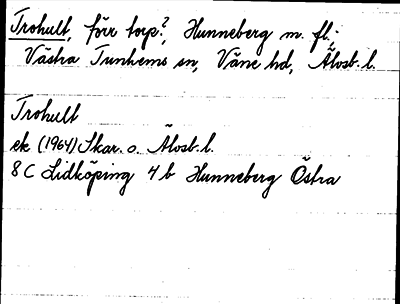 Trohult, förr torp?, Hunneberg m. fl.
Västra Tunhems sn, Väne hd, Älvsb. l.
Trohult
ek (1964) Skar. o. Älvsb. l.
8 C Lidköping 4 b Hunneberg Östra